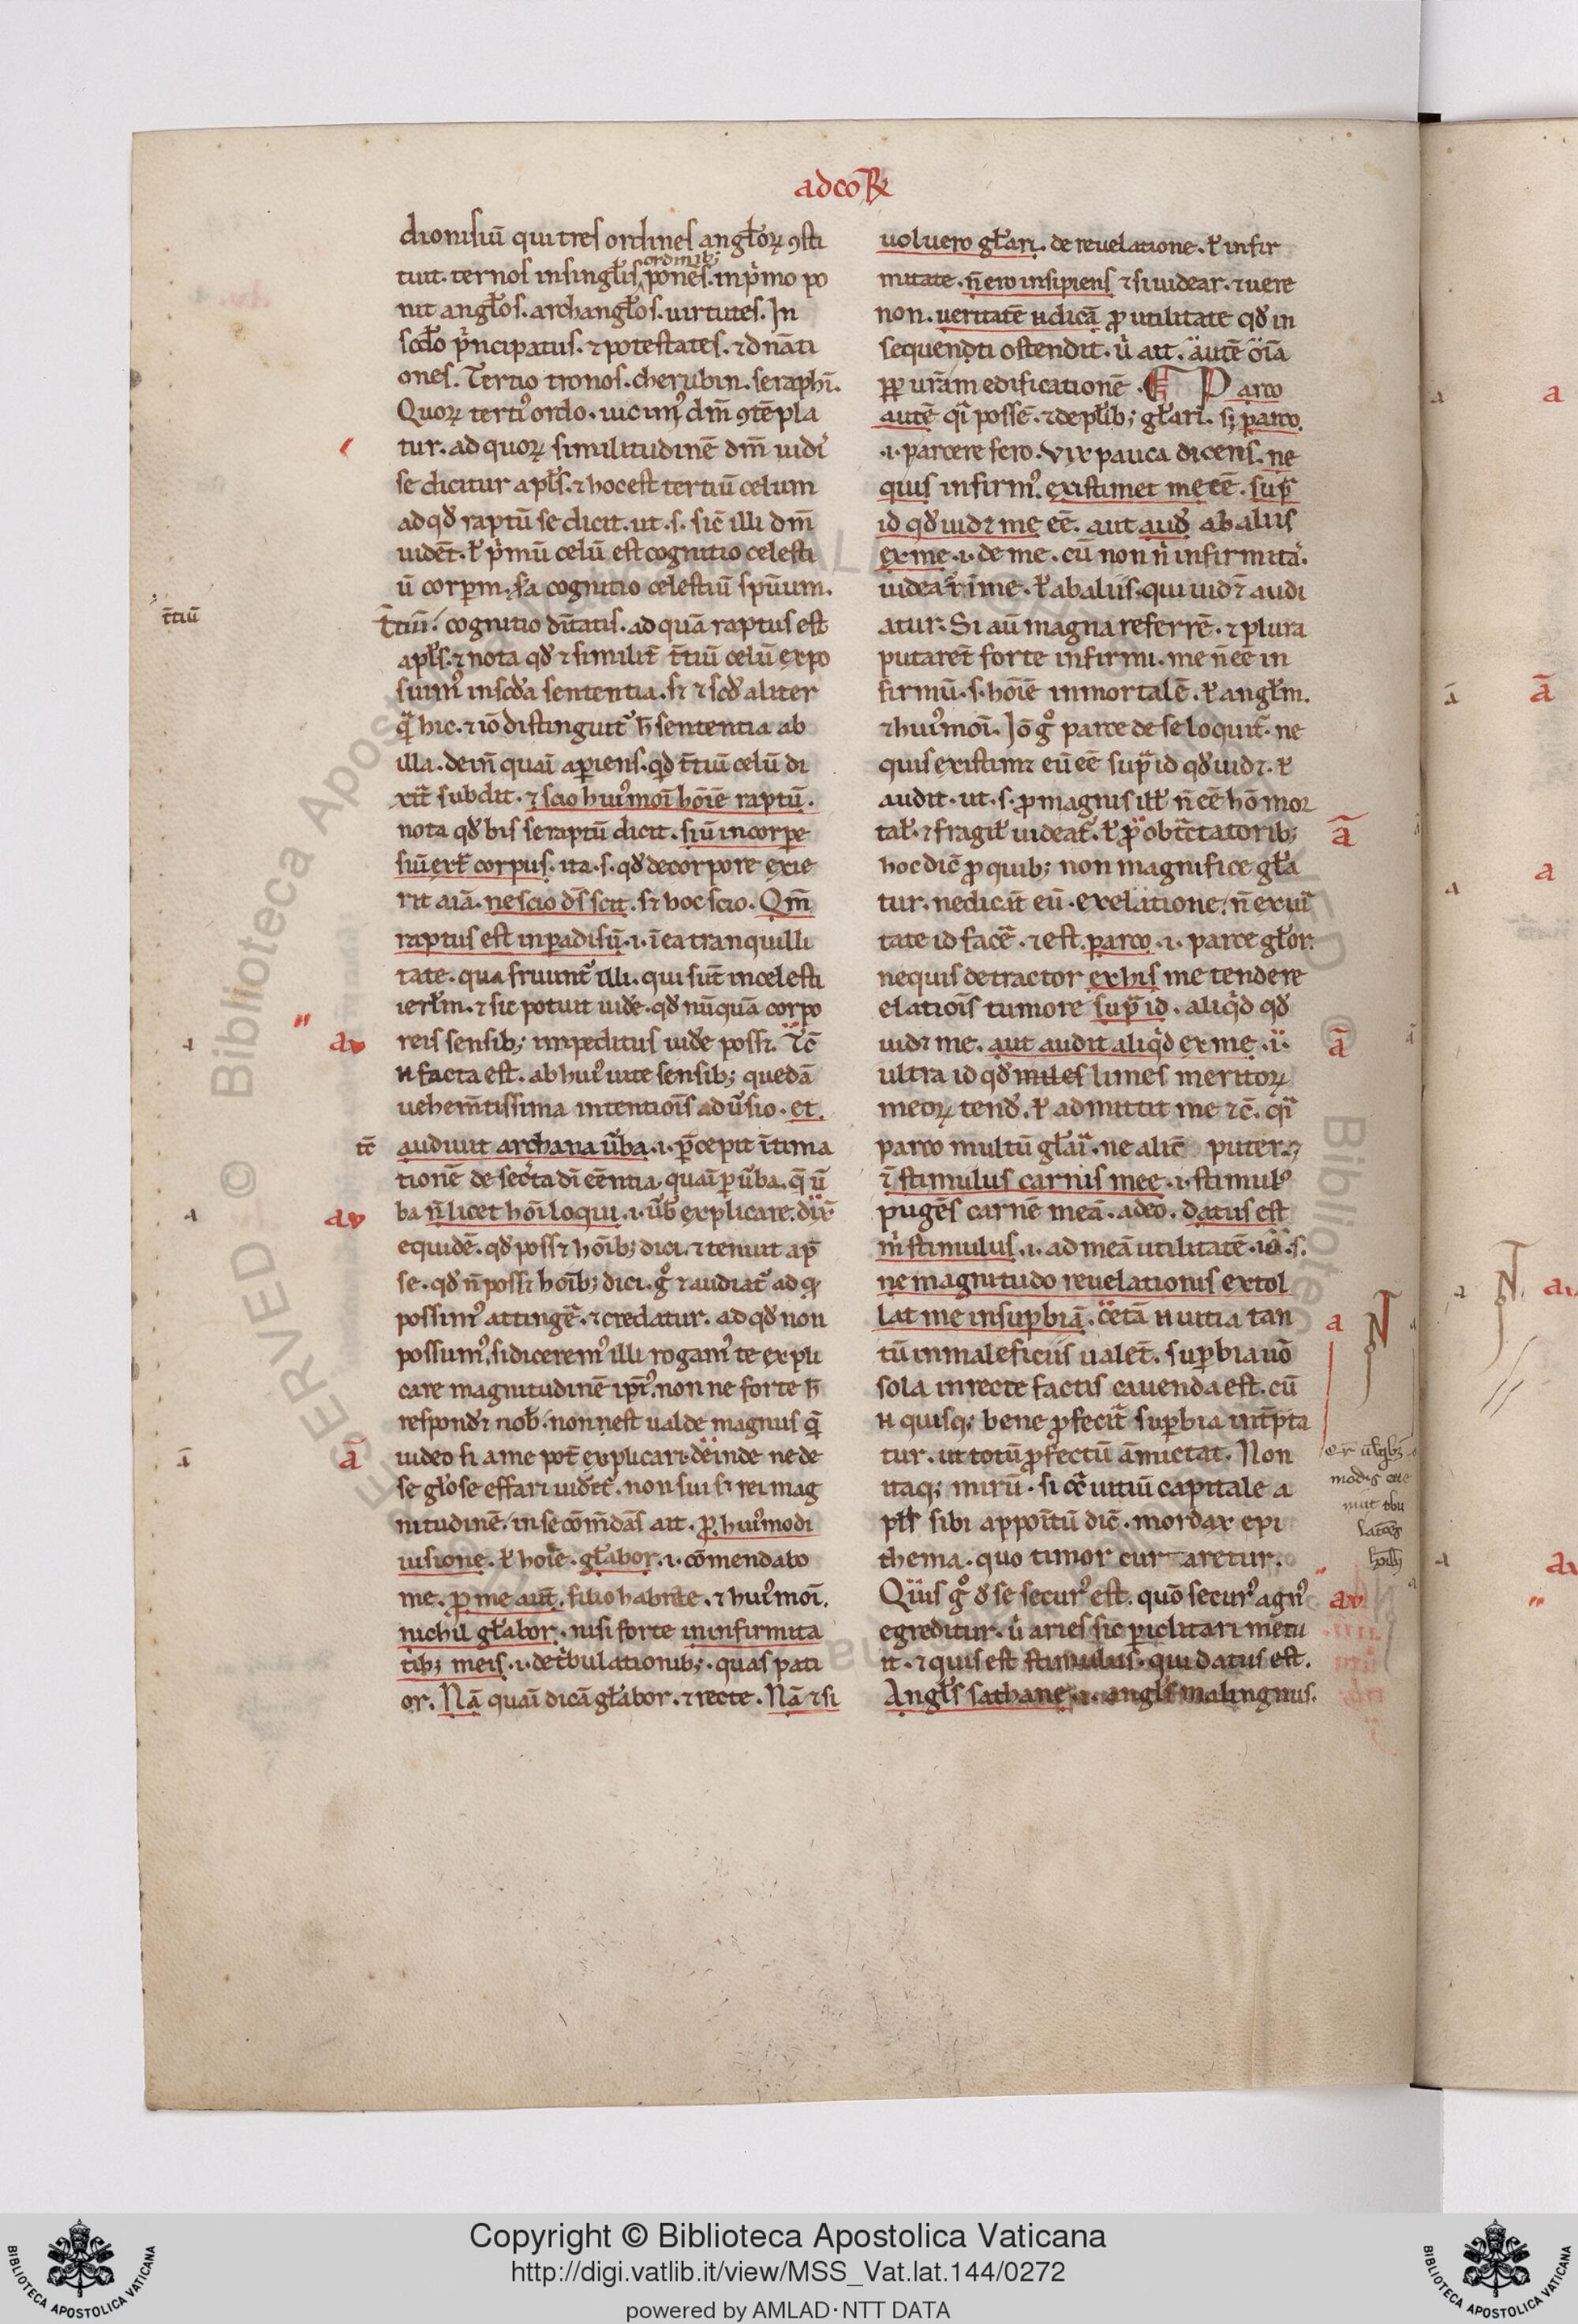 ad coꝶ
dionisiū qui tres ordines angłoꝝ ꝯsti
ordinib;
tuit. ternos in singłis ponēs. in pͥmo po
nit angłos. archangłos. uirtutes. In
scdo pͥncipatus. ⁊ potestates. ⁊ dnāti
ones. Tertio tronos. cherubin. seraphī.
Quoꝝ terti᷒ ordo. uicini᷒ dm̄ ꝯtēpla
tur. ad quoꝝ similitudinē dm̄ uidi
se dicitur apłs. ⁊ hoc est tertiū celum
ad qđ raptū se dicit. ut .s. sic̄ illi dm̄
uidēt. ł pͥmū celū est cognitio celesti
ū corpꝝm. s̄a cognitio celestiū spūum.
t̄tiū
t̄tiū. cognitio dītatis. ad quā raptus est
apłs. ⁊ nota qđ ⁊ similit̄ t̄tiū celū expo
suim᷒ in scđa sententia. s; ⁊ scđ aliter
qͣ hic. ⁊ iō distinguit᷑ h̄ sententia ab
illa. dein̄ quaī apiens. qđ t̄tiū celū di
xit᷑ subdit. ⁊ scio hui᷒moī hōiē raptū.
nota qđ bis se raptū dicit. siū in corpe
siū ext̄ corpus. ita .s. qđ de corpore exie
rit aīā. nescio ds̄ scit. s; hoc scio. Qm̄
raptus est in padisū .i. ī ea tranquilli
tate. qua fruunt᷑ illi. qui sūt in celesti
ierłm. ⁊ sic potuit uide. qđ nūquā corpo
av
reis sensib; impeditus uide poss;. Tc̄
n̄ facta est. ab hui᷒ uite sensib; quedā
uehem̄tissima intentiōis aduͥsio. et
tc̄
audiuit archana ūba .i. pcepit ītima
tionē de sec̄ta dī eēntia. quaī p ūba. q̄ ū
av
ba n̄ licet hōi loqui .i. ūb explicare. dix̄
equidē. qđ poss; hōib; dici. ⁊ tenuit ap
se. qđ n̄ poss; hoīb; dici. gͦ ⁊ audiat᷑ ad qđ
possim᷒ attinge᷑. ⁊ credatur. ad qđ non
possum᷒. si dicerem᷒ illi rogam᷒ te expli
care magnitudinē ip̄i᷒. non ne forte h̄
respond; nob. non est ualde magnus q̄
ā
uideo si a me pot̄ explicari. deinde ne de
se głose effari uidet᷑. non sui s; rei mag
nitudinē. in se cōm̄dās ait. ꝓ hui᷒modi
uisione. ł hoīe. głabor .i. cōmendabo
me. ꝓ me aut̄. filio habnte. ⁊ hui᷒moī.
nichil głabor. nisi forte in infirmita
tib; meis .i. de tͥbulationib;. quas pati
or. Nā quaī dicā głabor. ⁊ recte. Nā ⁊ si
uoluero głari. de reuelatione. ł infir
mitate. n̄ ero insipiens ⁊ si uidear. ⁊ uere
non. ueritatē n̄ dicā ꝓ utilitate qđ in
sequenti ostendit. uͥ ait. autē oīa
ꝓp urām edificationē. Parco
autē qͥ possē. ⁊ de plib; głari. s; parco.
.i. parcere fero. vix pauca dicens. ne
quis infirm᷒. existimet me eē. supͣ
id qđ uid; me eē. aut aud ab aliis
ex me .i. de me. cū non n̄ infirmitā.
uideat᷑ in me. ł ab aliis. qui uid; ⁊ audi
atur. Si aū magna referrē. ⁊ plura
putarēt forte infirmi. me n̄ eē in
firmū .s. hoīē inmortalē. ł angłm.
⁊ hui᷒moī. Iō gͦ parce de se loquit᷑. ne
quis existim; eū eē supͣ id qđ uid;. ł
audit. ut .s. ꝓ magnis ill n̄ eē hō mor
ā
tał. ⁊ fragił uideat᷑. ł ꝓ obt̄ctatorib;
hoc dic̄ ꝓ quib; non magnifice gła
tur. ne dicāt eū. ex elatione. n̄ ex uͥi
tate id face᷑. ⁊ est. parco .i. parce głor.
ne quis detractor ex his me tendere
elatiōis tumore supͣ id. aliqͥd qđ
ā
uid; me. aut audit aliqͥd ex me .i.
ultra id qđ miles limes meritoꝝ
meoꝝ tend;. ł admittit me ⁊c̄. qͥ
parco multū głai. ne alic̄ puter. ⁊
ī stimulus carnis mee .i. stimul᷒
pugēs carnē meā. a deo. datus est
mͥ stimulus .i. ad meā utilitatē. .s.
ne magnitudo reuelationis extol
a
lat me in supbiā. cētā n̄ uitia tan
tū in maleficiis ualēt. supbia uō
sola in recte factis cauenda est. cū
n̄ quisq; bene ꝓfecit᷑ supbia int̄pta
tur. ut totū ꝓfectū āmictat. Non
itaq; mirū. si cͣ uitiū capitale a
płs sibi appoitū dic̄. mordax epi
thema. quo timor curaretur.
av
Quis gͦ đ se secur᷒ est. quō secur᷒ agn᷒
egreditur. uͥ aries sic piclitari metu
it. ⁊ quis est stimulus. qui datus est.
Angłs sathane .i. angłs malingnus.
Copyright © Biblioteca Apostolica Vaticana
http://digi.vatlib.it/view/MSS_Vat.lat.144/0272
powered by AMLAD·NTT DATA
BIBLIOTECA APOSTOLICA VATICANA
BIBLIOTECA APOSTOLICA VATICANA